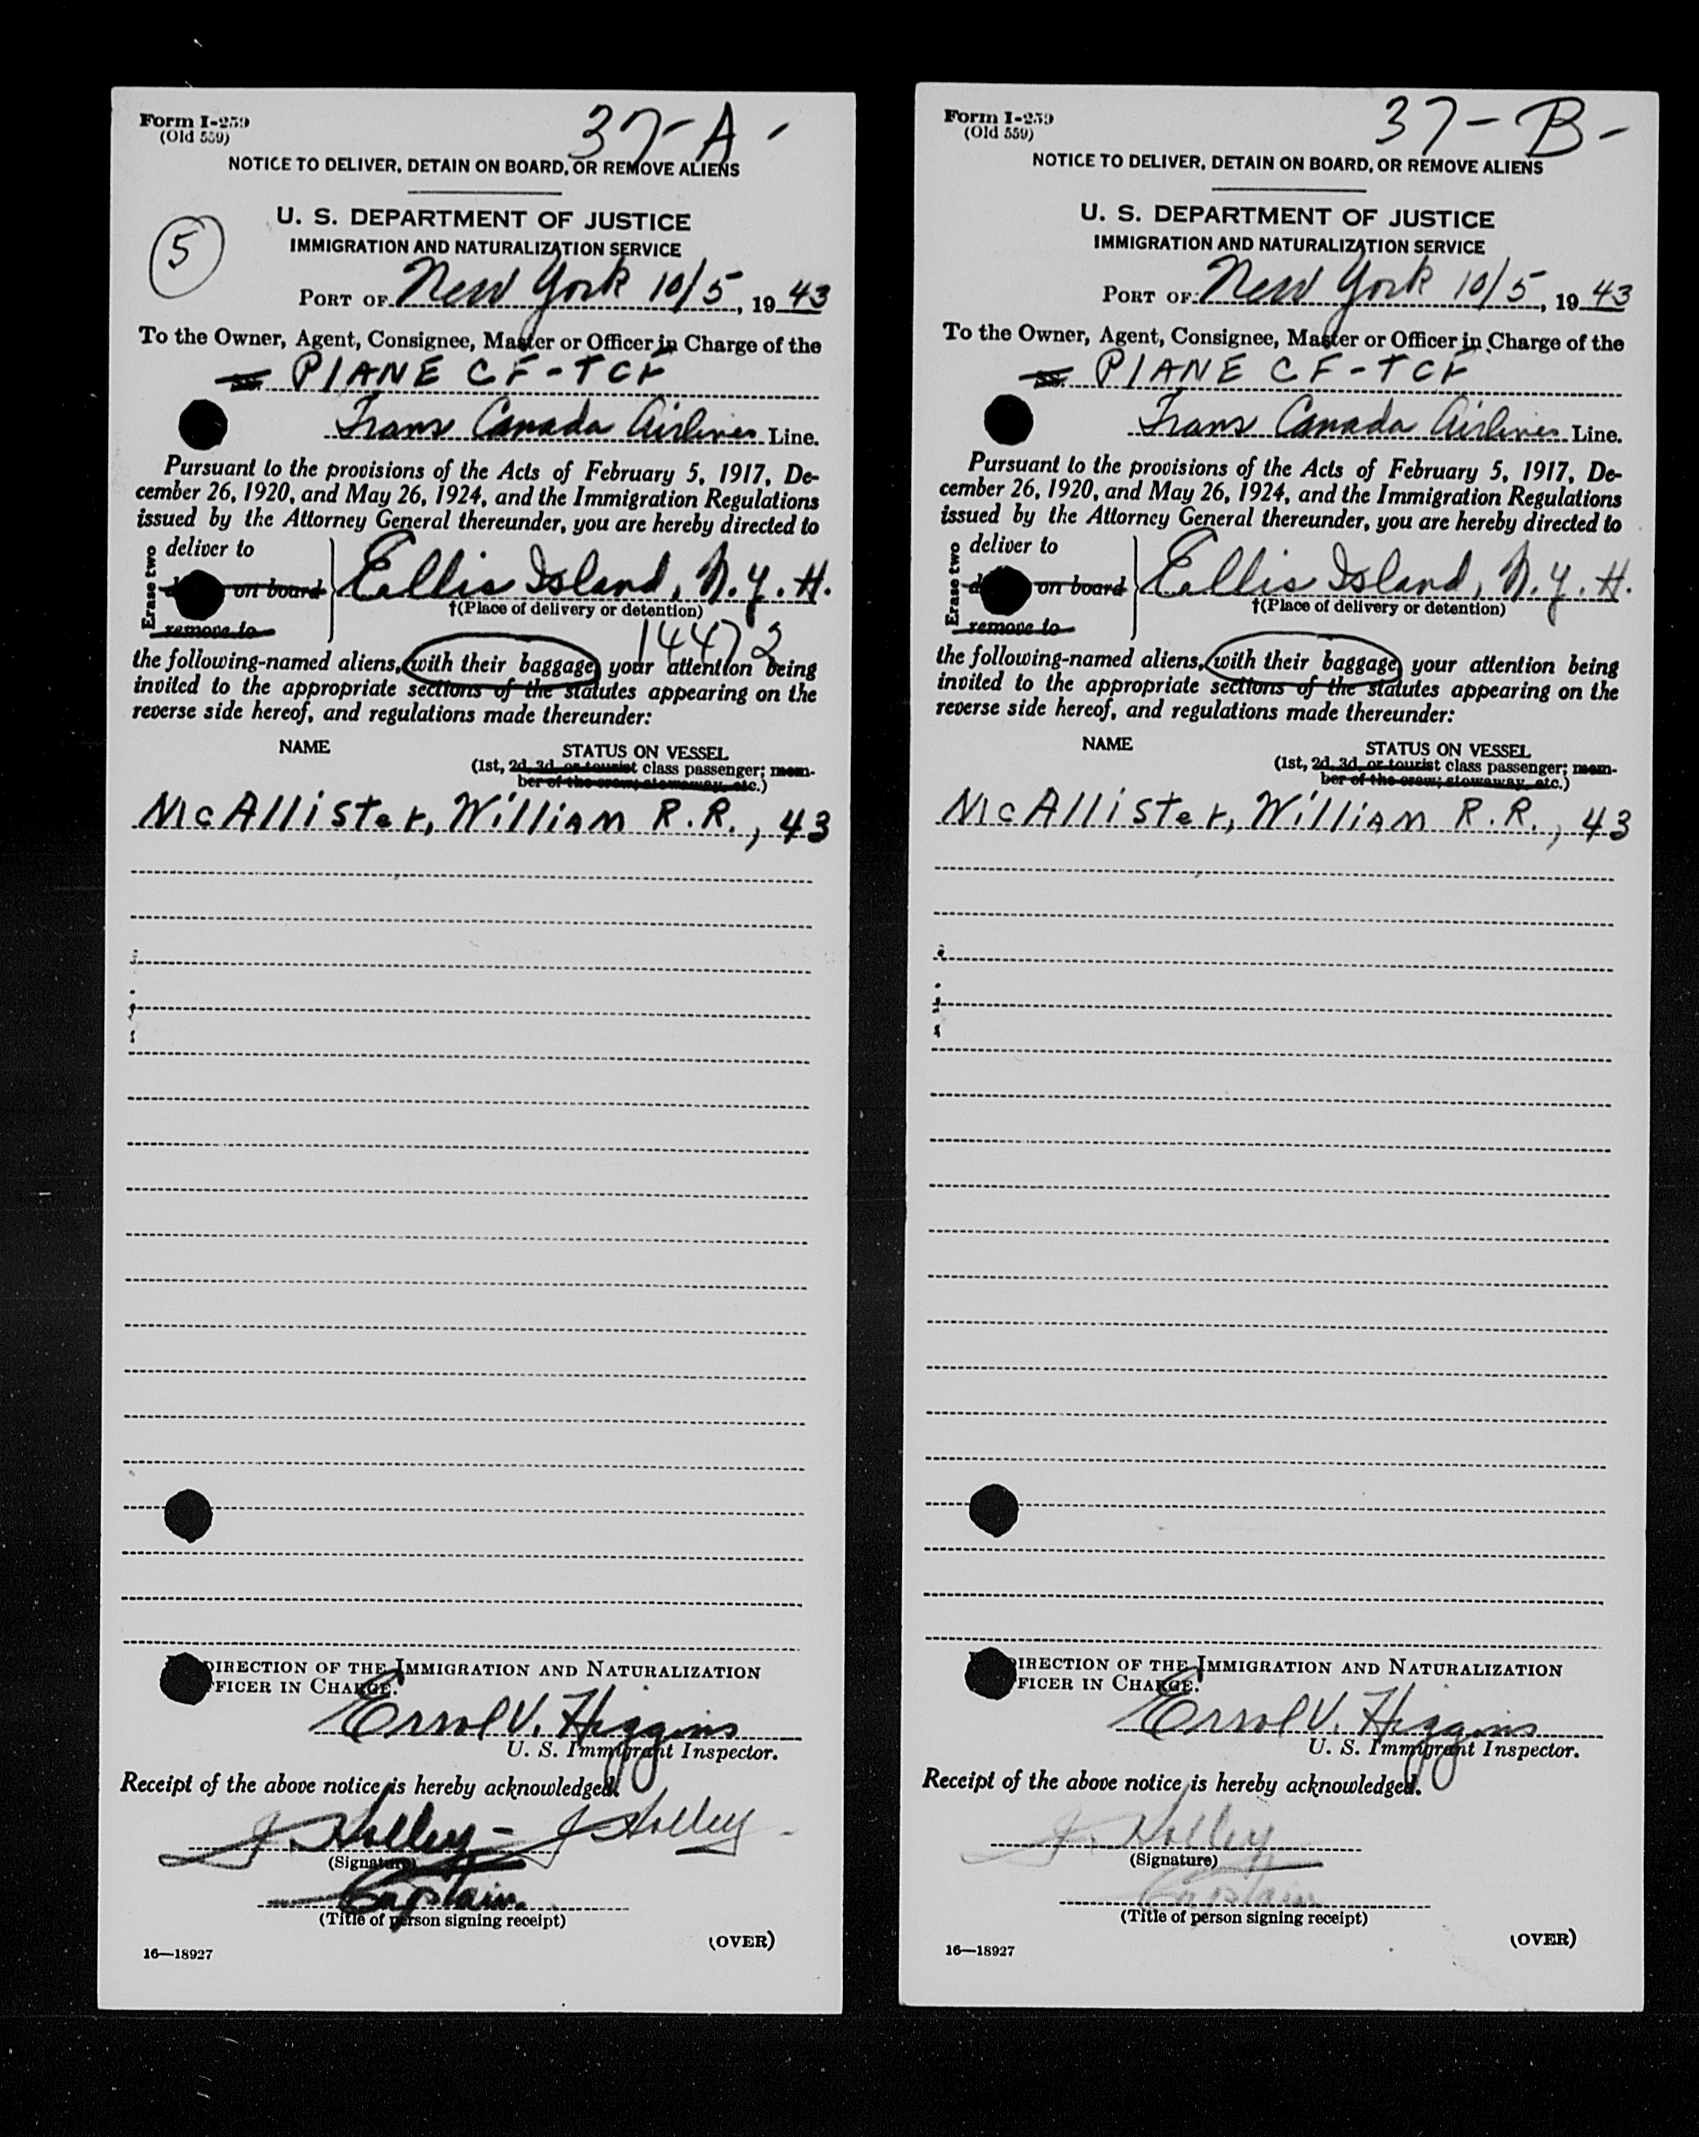 37-A-
Form I-259
(Old 559)
NOTICE TO DELIVER, DETAIN ON BOARD, OR REMOVE ALIENS
U. S. DEPARTMENT OF JUSTICE
IMMIGRATION AND NATURALIZATION SERVICE
5
PORT OF New York 10/5, 19 43
To the Owner, Agent, Consignee, Master or Officer in Charge of the
PlANE CF-TCF
Trans Canada Airlines Line.
Pursuant to the provisions of the Acts of February 5, 1917, De-
cember 26, 1920, and May 26, 1924, and the Immigration Regulations
issued by the Attorney General thereunder, you are hereby directed to
Erase two
deliver to
on board
remove to
Ellis Island, N.Y.H.
†(Place of delivery or detention)
14473
the following-named aliens, with their baggage, your attention being
invited to the appropriate sections of the statutes appearing on the
reverse side hereof, and regulations made thereunder:
NAME
STATUS ON VESSEL
(1st, 2d, 3d, or tourist class passenger; mem-
ber of the crew; stowaway, etc.)
McAllister, William R.R., 43
DIRECTION OF THE IMMIGRATION AND NATURALIZATION
FICER IN CHARGE.
Errol V. Higgins
U. S. Immigrant Inspector.
Receipt of the above notice is hereby acknowledged.
J. Holley - J Holley -
(Signature)
Captain
(Title of person signing receipt)
16—18927
(OVER)
37-B-
Form I-259
(Old 559)
NOTICE TO DELIVER, DETAIN ON BOARD, OR REMOVE ALIENS
U. S. DEPARTMENT OF JUSTICE
IMMIGRATION AND NATURALIZATION SERVICE
PORT OF New York 10/5, 19 43
To the Owner, Agent, Consignee, Master or Officer in Charge of the
PlANE CF-TCF
Trans Canada Airlines Line.
Pursuant to the provisions of the Acts of February 5, 1917, De-
cember 26, 1920, and May 26, 1924, and the Immigration Regulations
issued by the Attorney General thereunder, you are hereby directed to
Erase two
deliver to
on board
remove to
Ellis Island, N.Y.H.
†(Place of delivery or detention)
the following-named aliens, with their baggage, your attention being
invited to the appropriate sections of the statutes appearing on the
reverse side hereof, and regulations made thereunder:
NAME
STATUS ON VESSEL
(1st, 2d, 3d, or tourist class passenger; mem-
ber of the crew; stowaway, etc.)
McAllister, William R.R., 43
DIRECTION OF THE IMMIGRATION AND NATURALIZATION
FICER IN CHARGE.
Errol V. Higgins
U. S. Immigrant Inspector.
Receipt of the above notice is hereby acknowledged.
J. Holley
(Signature)
Captain
(Title of person signing receipt)
16—18927
(OVER)